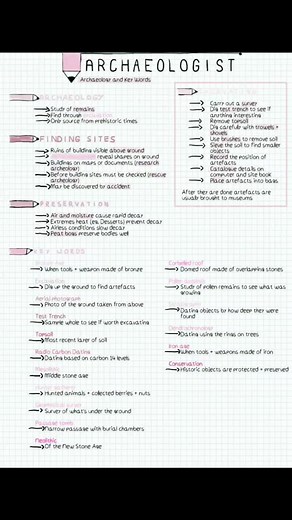 ARCHAEOLOGIST
Archaeology and Key Words
ARCHAEOLOGY
Study of remains
Find through
Only source from prehistoric times
FINDING SITES
Ruins of building visible above ground
reveal shapes on ground
Buildings on maps or documents (research
archaeology)
Before building sites must be checked (rescue
archaeology)
May be discovered by accident
PRESERVATION
Air and moisture cause rapid decay
Extremes heat (eg. Desserts) prevent decay
Airless conditions slow decay
Peat bogs preserve bodies well
EXCAVATING
Carry out a survey
Dig test trench to see if
anything interesting
Remove topsoil
Dig carefully with trowels +
shovels
Use brushes to remove soil
Sieve the soil to find smaller
objects
Record the position of
artefacts
Catalogue details on
computer and site book
Place artefacts into bags
After they are done artefacts are
usually brought to museums.
KEY WORDS
When tools + weapon made of bronze
Dig up the ground to find artefacts
Aerial photogram
Photo of the ground taken from above
Test Trench
Sample whole to see if worth excavating
Topsoil
Most recent layer of soil
Radio Carbon Dating
Dating based on carbon 14 levels
Mesolithic
Middle stone age
Hunted animals + collected berries + nuts
Survey of what's under the ground
Passage tomb
Narrow passage with burial chambers
Neolithic
Of the New Stone Age
Corbelled roof
Domed roof made of overlapping stones
Study of pollen remains to see what was
growing
Dating objects by how deep they were
found
Dendrochronology
Dating using the rings on trees
Iron age
When tools + weapons made of iron
Conservation
Historic objects are protected + preserved